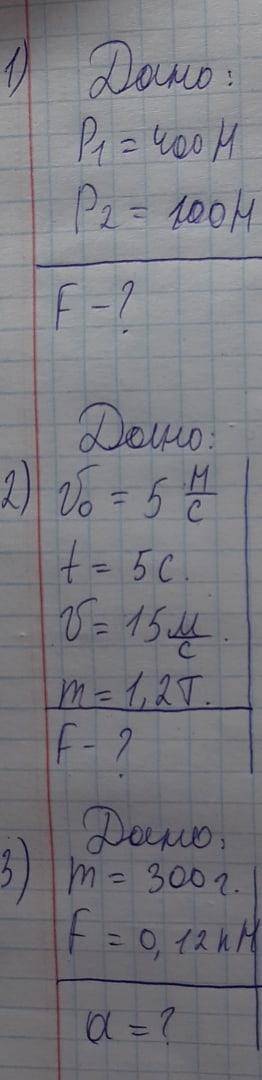 1) Дано:
P₁ = 400 Н
P₂ = 100 Н
F - ?
Дано:
2) v₀ = 5 м/с
t = 5 с.
v = 15 м/с.
m = 1,2 т.
F - ?
Дано:
3) m = 300 г.
F = 0,12 кН
a = ?